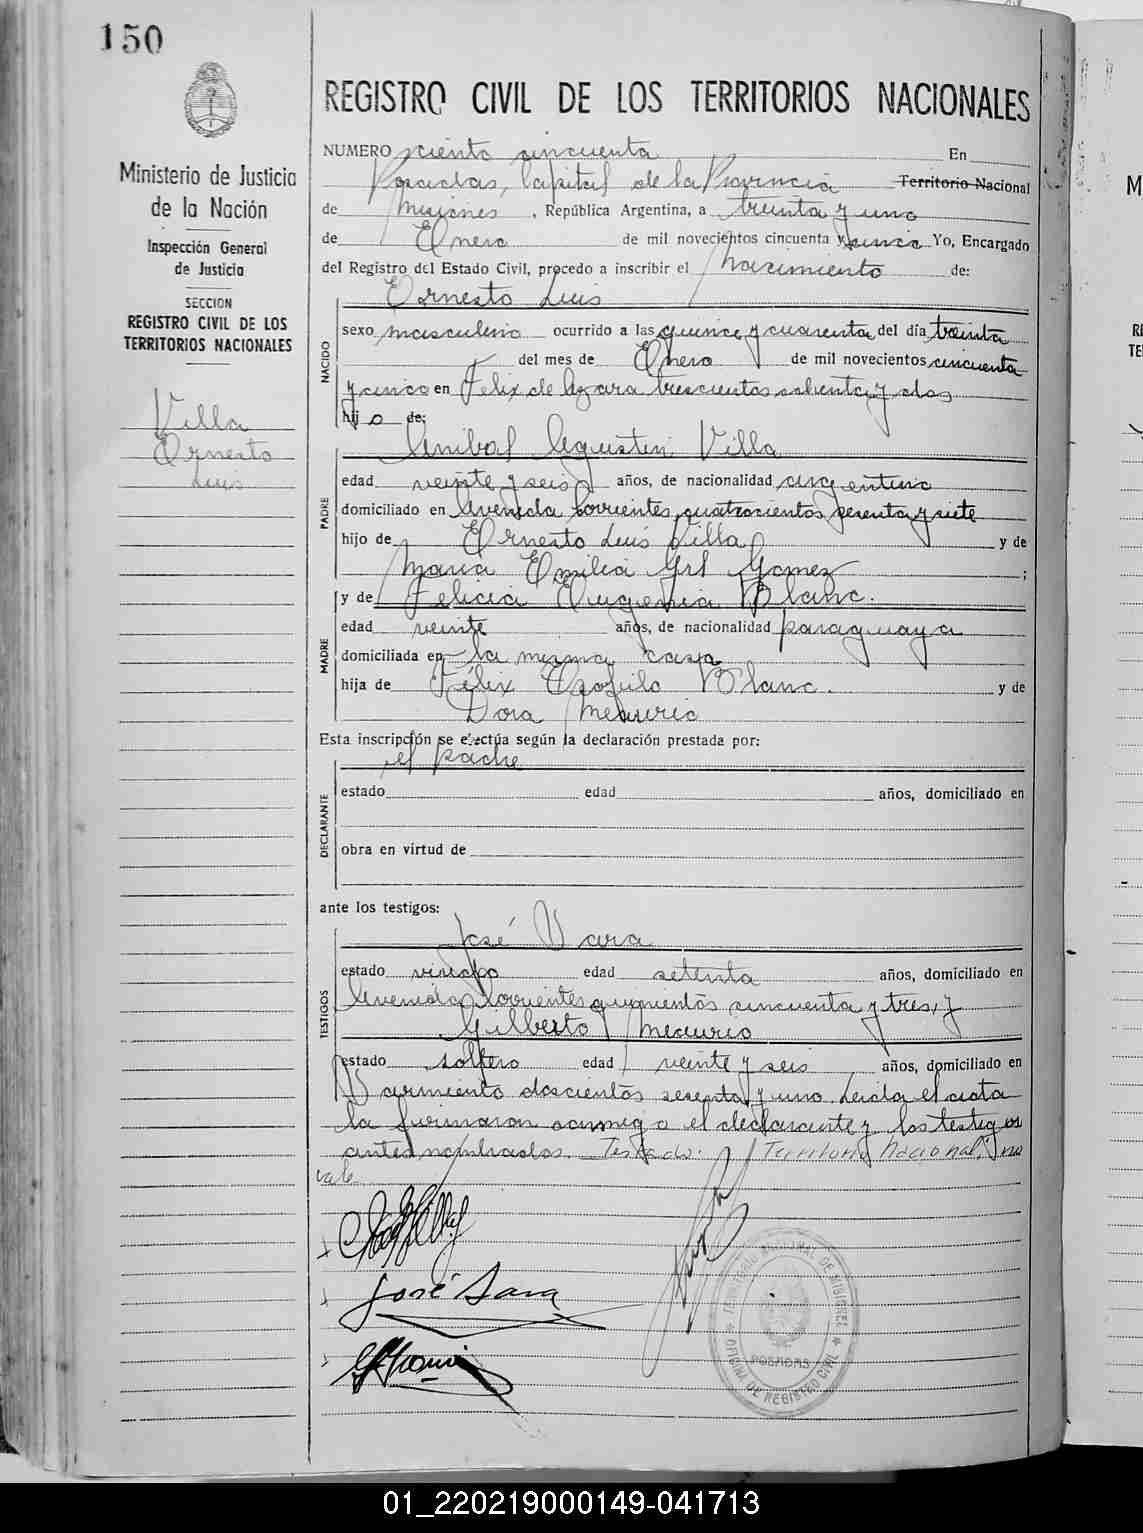 150
Ministerio de Justicia
de la Nación
Inspección General
de Justicia
SECCION
REGISTRO CIVIL DE LOS
TERRITORIOS NACIONALES
Villa
Ernesto
Luis
REGISTRO CIVIL DE LOS TERRITORIOS NACIONALES
NUMERO ciento cincuenta En
Posadas, Capital de la Provincia Territorio Nacional
de Misiones, República Argentina, a treinta y uno
de Enero de mil novecientos cincuenta y cinco Yo, Encargado
del Registro del Estado Civil, procedo a inscribir el Nacimiento de:
Ernesto Luis
NACIDO
sexo masculino ocurrido a las quince y cuarenta del día treinta
del mes de Enero de mil novecientos cincuenta
y cinco en Felix de Azara trescientos ochenta y dos
hijo de:
Anibal Agustin Villa
PADRE
edad veinte y seis años, de nacionalidad argentino
domiciliado en Avenida Corrientes cuatrocientos sesenta y siete
hijo de Ernesto Luis Villa y de
Maria Emilia Gomez;
y de Felicia Eugenia Blanc.
MADRE
edad veinte años, de nacionalidad paraguaya
domiciliada en la misma casa
hija de Félix Teofilo Blanc. y de
Dora Meaurio
Esta inscripción se efectúa según la declaración prestada por:
el padre
DECLARANTE
estado edad años, domiciliado en
obra en virtud de
ante los testigos:
José Sara
TESTIGOS
estado viudo edad setenta años, domiciliado en
Avenida Corrientes quinientos cincuenta y tres, y
Gilberto Meaurio
estado soltero edad veinte y seis años, domiciliado en
Sarmiento doscientos sesenta y uno. Leida el acta
la firmaron conmigo el declarante y los testigos
antes nombrados. Testado: Territorio Nacional, no
vale
José Sara
TERRITORIO NACIONAL DE MISIONES
POSADAS
OFICINA DE REGISTRO CIVIL
M
RE
TE
01_220219000149-041713